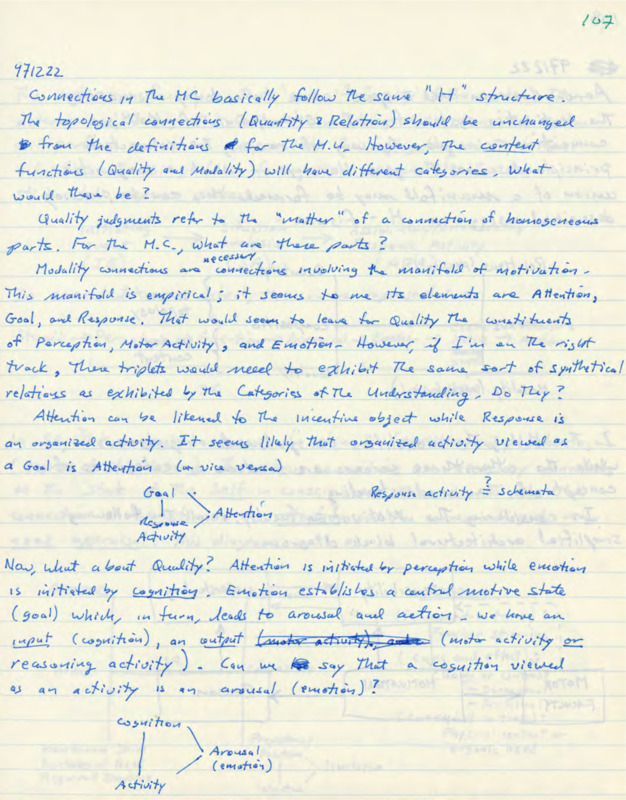 107
971222
Connections in the MC basically follow the same "H" structure.
The topological connections (Quantity & Relation) should be unchanged
from the definitions for the M.U. However, the content
functions (Quality and Modality) will have different categories. What
would these be?
Quality judgments refer to the "matter" of a connection of homogeneous
parts. For the M.C., what are these parts?
necessary
Modality connections are connections involving the manifold of motivation.
This manifold is empirical; it seems to me its elements are Attention,
Goal, and Response. That would seem to leave for Quality the constituents
of Perception, Motor Activity, and Emotion. However, if I'm on the right
track, These triplets would need to exhibit the same sort of synthetical
relations as exhibited by the Categories of the Understanding. Do They?
Attention can be likened to the incentive object while Response is
an organized activity. It seems likely that organized activity viewed as
a Goal is Attention (or vice versa)
?
Goal Response activity = schemata
Attention
Response
Activity
Now, what about Quality? Attention is initiated by perception while emotion
is initiated by cognition. Emotion establishes a central motive state
(goal) which, in turn, leads to arousal and action. We have an
input (cognition), an output (motor activity), (motor activity or
reasoning activity). Can we say that a cognition viewed
as an activity is an arousal (emotion)?
Cognition
Arousal
(emotion)
Activity